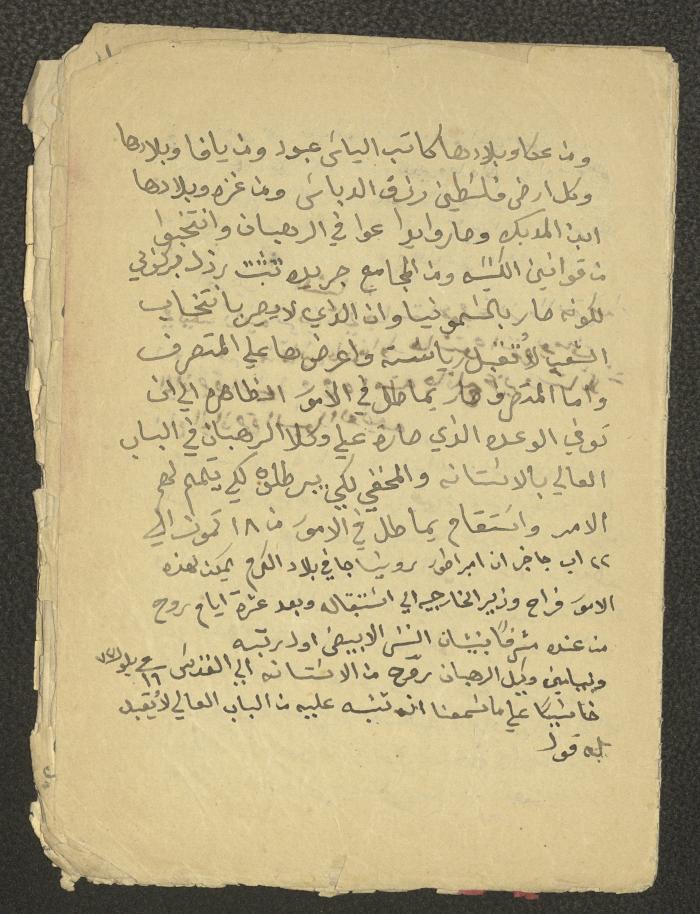 ومن عكا وبلادها كاتب الياس عبود ومن يافا وبلادها
وكل ارض فلسطين رزق الدباس ومن غزه وبلادها
ابن المدبك وصاروا عوا في الرهبان وانتخبوا
من قوانين الكنيسه ومن المجامع جريده تثبت رذل بركوبي
لكونه صار بالسمونيا وان الذي لا يصير بانتخاب
الشعب لا تُقبل رياسته واعرضها علي المتصرف
واما المتصرف صار يماطل في الامور الظاهره الي ان
توفي الوعده الذي صاره علي وكلا الرهبان في الباب
العالي بالاستانه والمخفي لكي يبرطلوه لكي يتمم لهم
الامر واستقام يماطل في الامور من ١٨ تموز الي
٢٢ اب جا خبر ان امبراطور روسيا جا في بلاد الكرم يمكن لهذه
الامور فراح وزير الخارجيه الي استقباله وبعد عشرة ايام روح
من عنده مشرفًا بنيشان النسر الابيض اول رتبه
وبنيامين وكيل الرهبان روّح من الاستانه الي القدس ١٦
خاسيًا علي ما سمعنا انه تنبه عليه من الباب العالي لا يُقبل
له قول